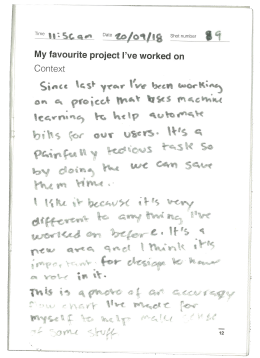 Time 11:56am Date 20/09/18 Shot number 19
My favourite project I've worked on
Context
Since last year I've been working
on a project that uses machine
learning to help automate
bills for our users. It's a
painfully tedious task so
by doing the we can save
them time.
I like it because it's very
different to anything I've
worked on before. It's a
new area and I think it's
important for design to have
a role in it.
This is a photo of an accuracy
flow chart I've made for
myself to help make sense
of some stuff
12